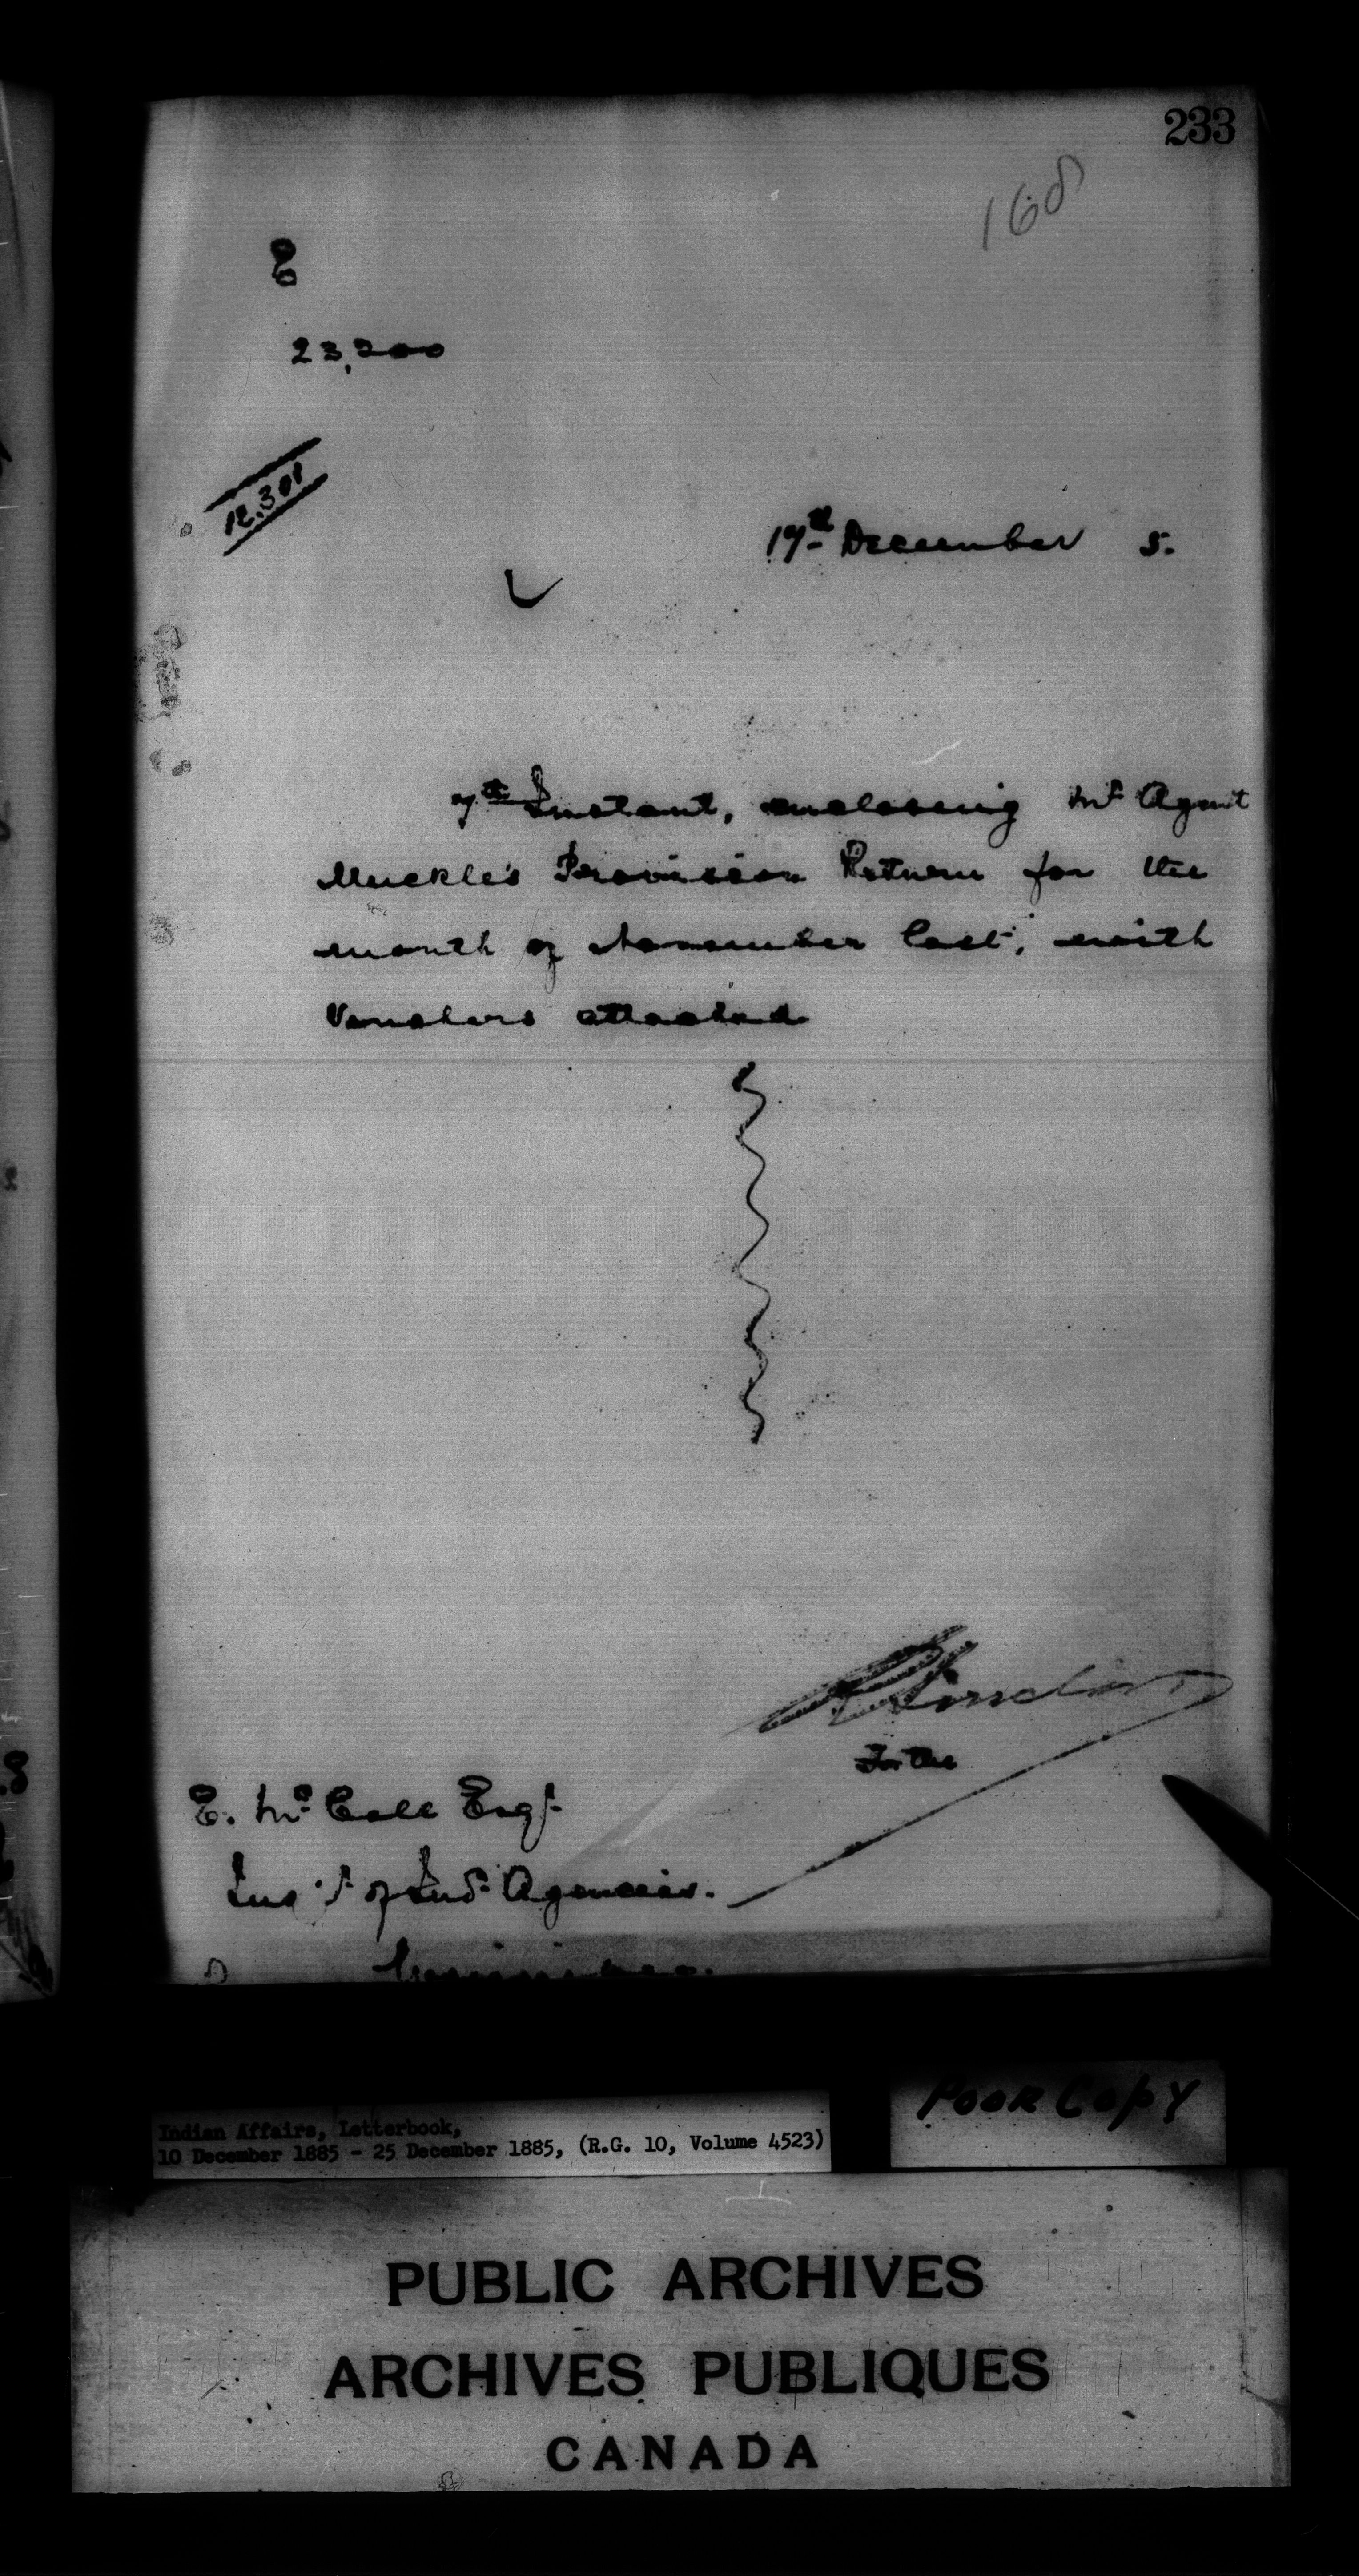 233
168
E
23,200
12.301
17th December 5.
7th Instant, enclosing Mr Agent
Muckle's Provision Return for the
month of November last, with
Vouchers attached
R Sinclair
For the
E. McColl Esqr
Insp'r of Ind. Agencies.
Winnipeg.
POOR COPY
Indian Affairs, Letterbook,
10 December 1885 - 25 December 1885, (R.G. 10, Volume 4523)
PUBLIC ARCHIVES
ARCHIVES PUBLIQUES
CANADA